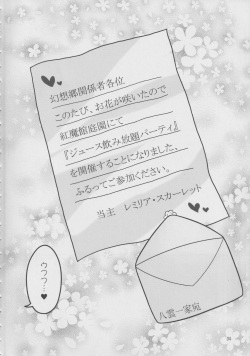 幻想郷関係者各位
このたび、お花が咲いたので
紅魔館庭園にて
『ジュース飲み放題パーティ』
を開催することになりました、
ふるってご参加ください。
当主 レミリア・スカーレット
八雲一家宛
うつつ…♥